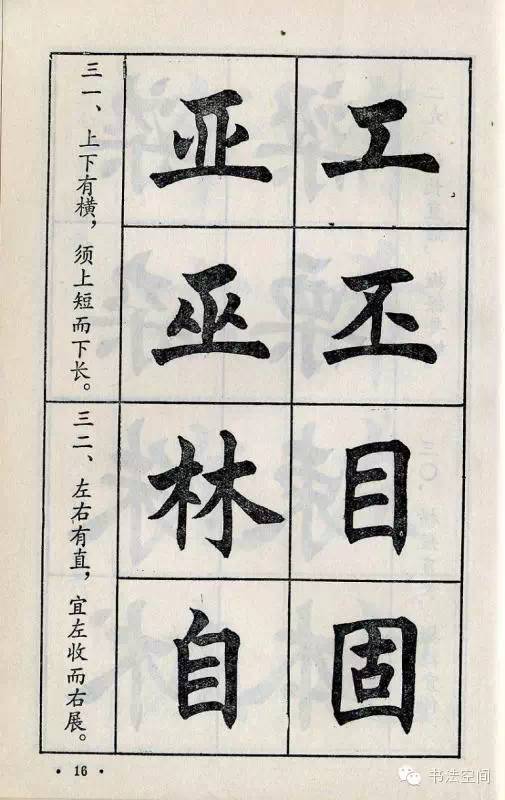 三一、上下有横，须上短而下长。
工
亚
丕
巫
三二、左右有直，宜左收而右展。
目
林
固
自
· 16 ·
书法空间